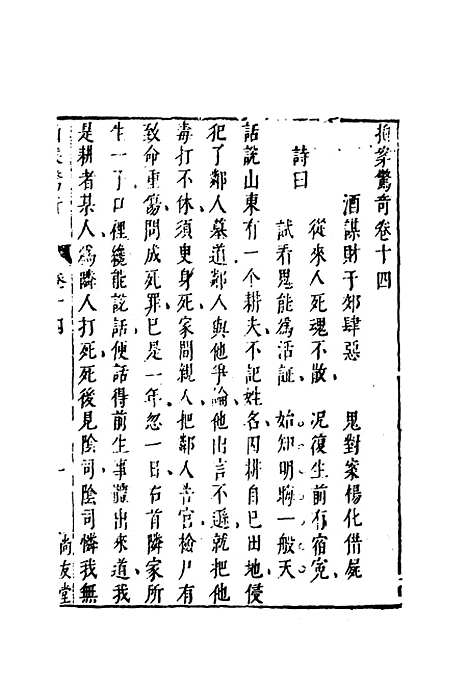 拍案驚奇卷十四
酒謀財于郊肆惡　鬼對案楊化借屍
詩曰
從來人死魂不散　况復生前有宿寃
試看鬼能為活証　始知明晦一般天
話說山東有一个耕夫不記姓名因耕自己田地侵
犯了鄰人墓道鄰人與他爭論他出言不遜就把他
毒打不休須臾身死家間親人把鄰人告官檢尸有
致命重傷問成死罪已是一年忽一日右首隣家所
生一子口裡纔能說話便話得前生事體出來道我
是耕者某人為隣人打死死後見陰司陰司憐我無
卷十四
一
尚友堂